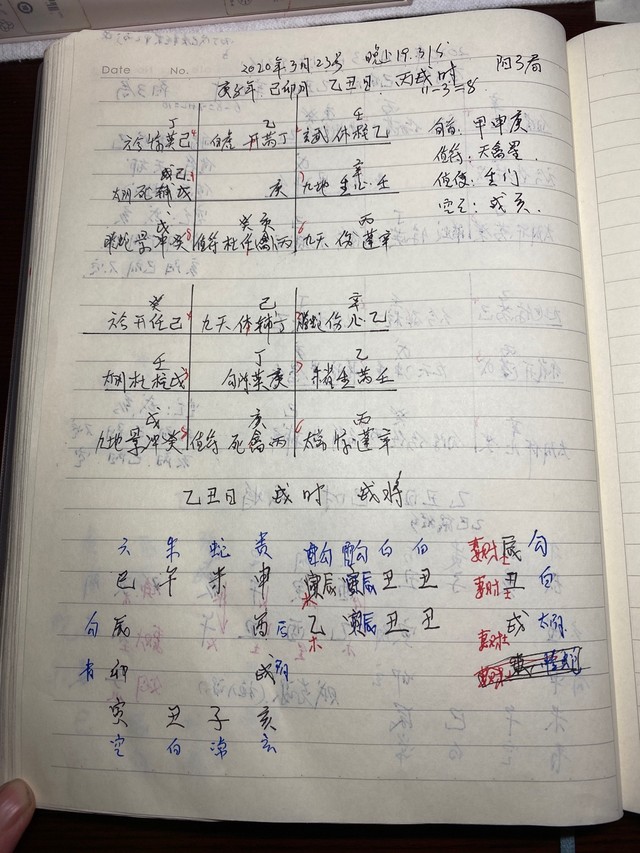 Date No.
2020年3月23号 晚上19:31分
庚子年 己卯月 乙丑日 丙戌时 阳3局
11-3=8
丁 乙 壬
六合惊芮己4 白虎开英丁 玄武休柱乙 旬首:甲申庚
值符:天禽星
戊己 辛
太阴死辅戊 庚 九地生心壬 值使:生门
空亡:戌亥
戊 癸庚 丙
螣蛇景冲癸8 值符杜任禽丙 九天伤蓬辛6
癸 己 辛
六合开任己4 九天休辅丁 螣蛇伤心乙
壬 丁 乙
太阴杜柱戊 勾陈英庚 朱雀生芮壬
戊 庚 丙
九地景冲癸8 值符死禽丙 太常惊蓬辛6
乙丑日 戌时 戌将
六 朱 蛇 贵 勾 勾 白 白 妻财 辰 勾
巳 午 未 申 辰 辰 丑 丑 妻财 丑 白
勾 辰 酉 后 乙 辰 丑 丑 妻财 戌 太阴
青 卯 戌 阴
寅 丑 子 亥
空 白 常 玄